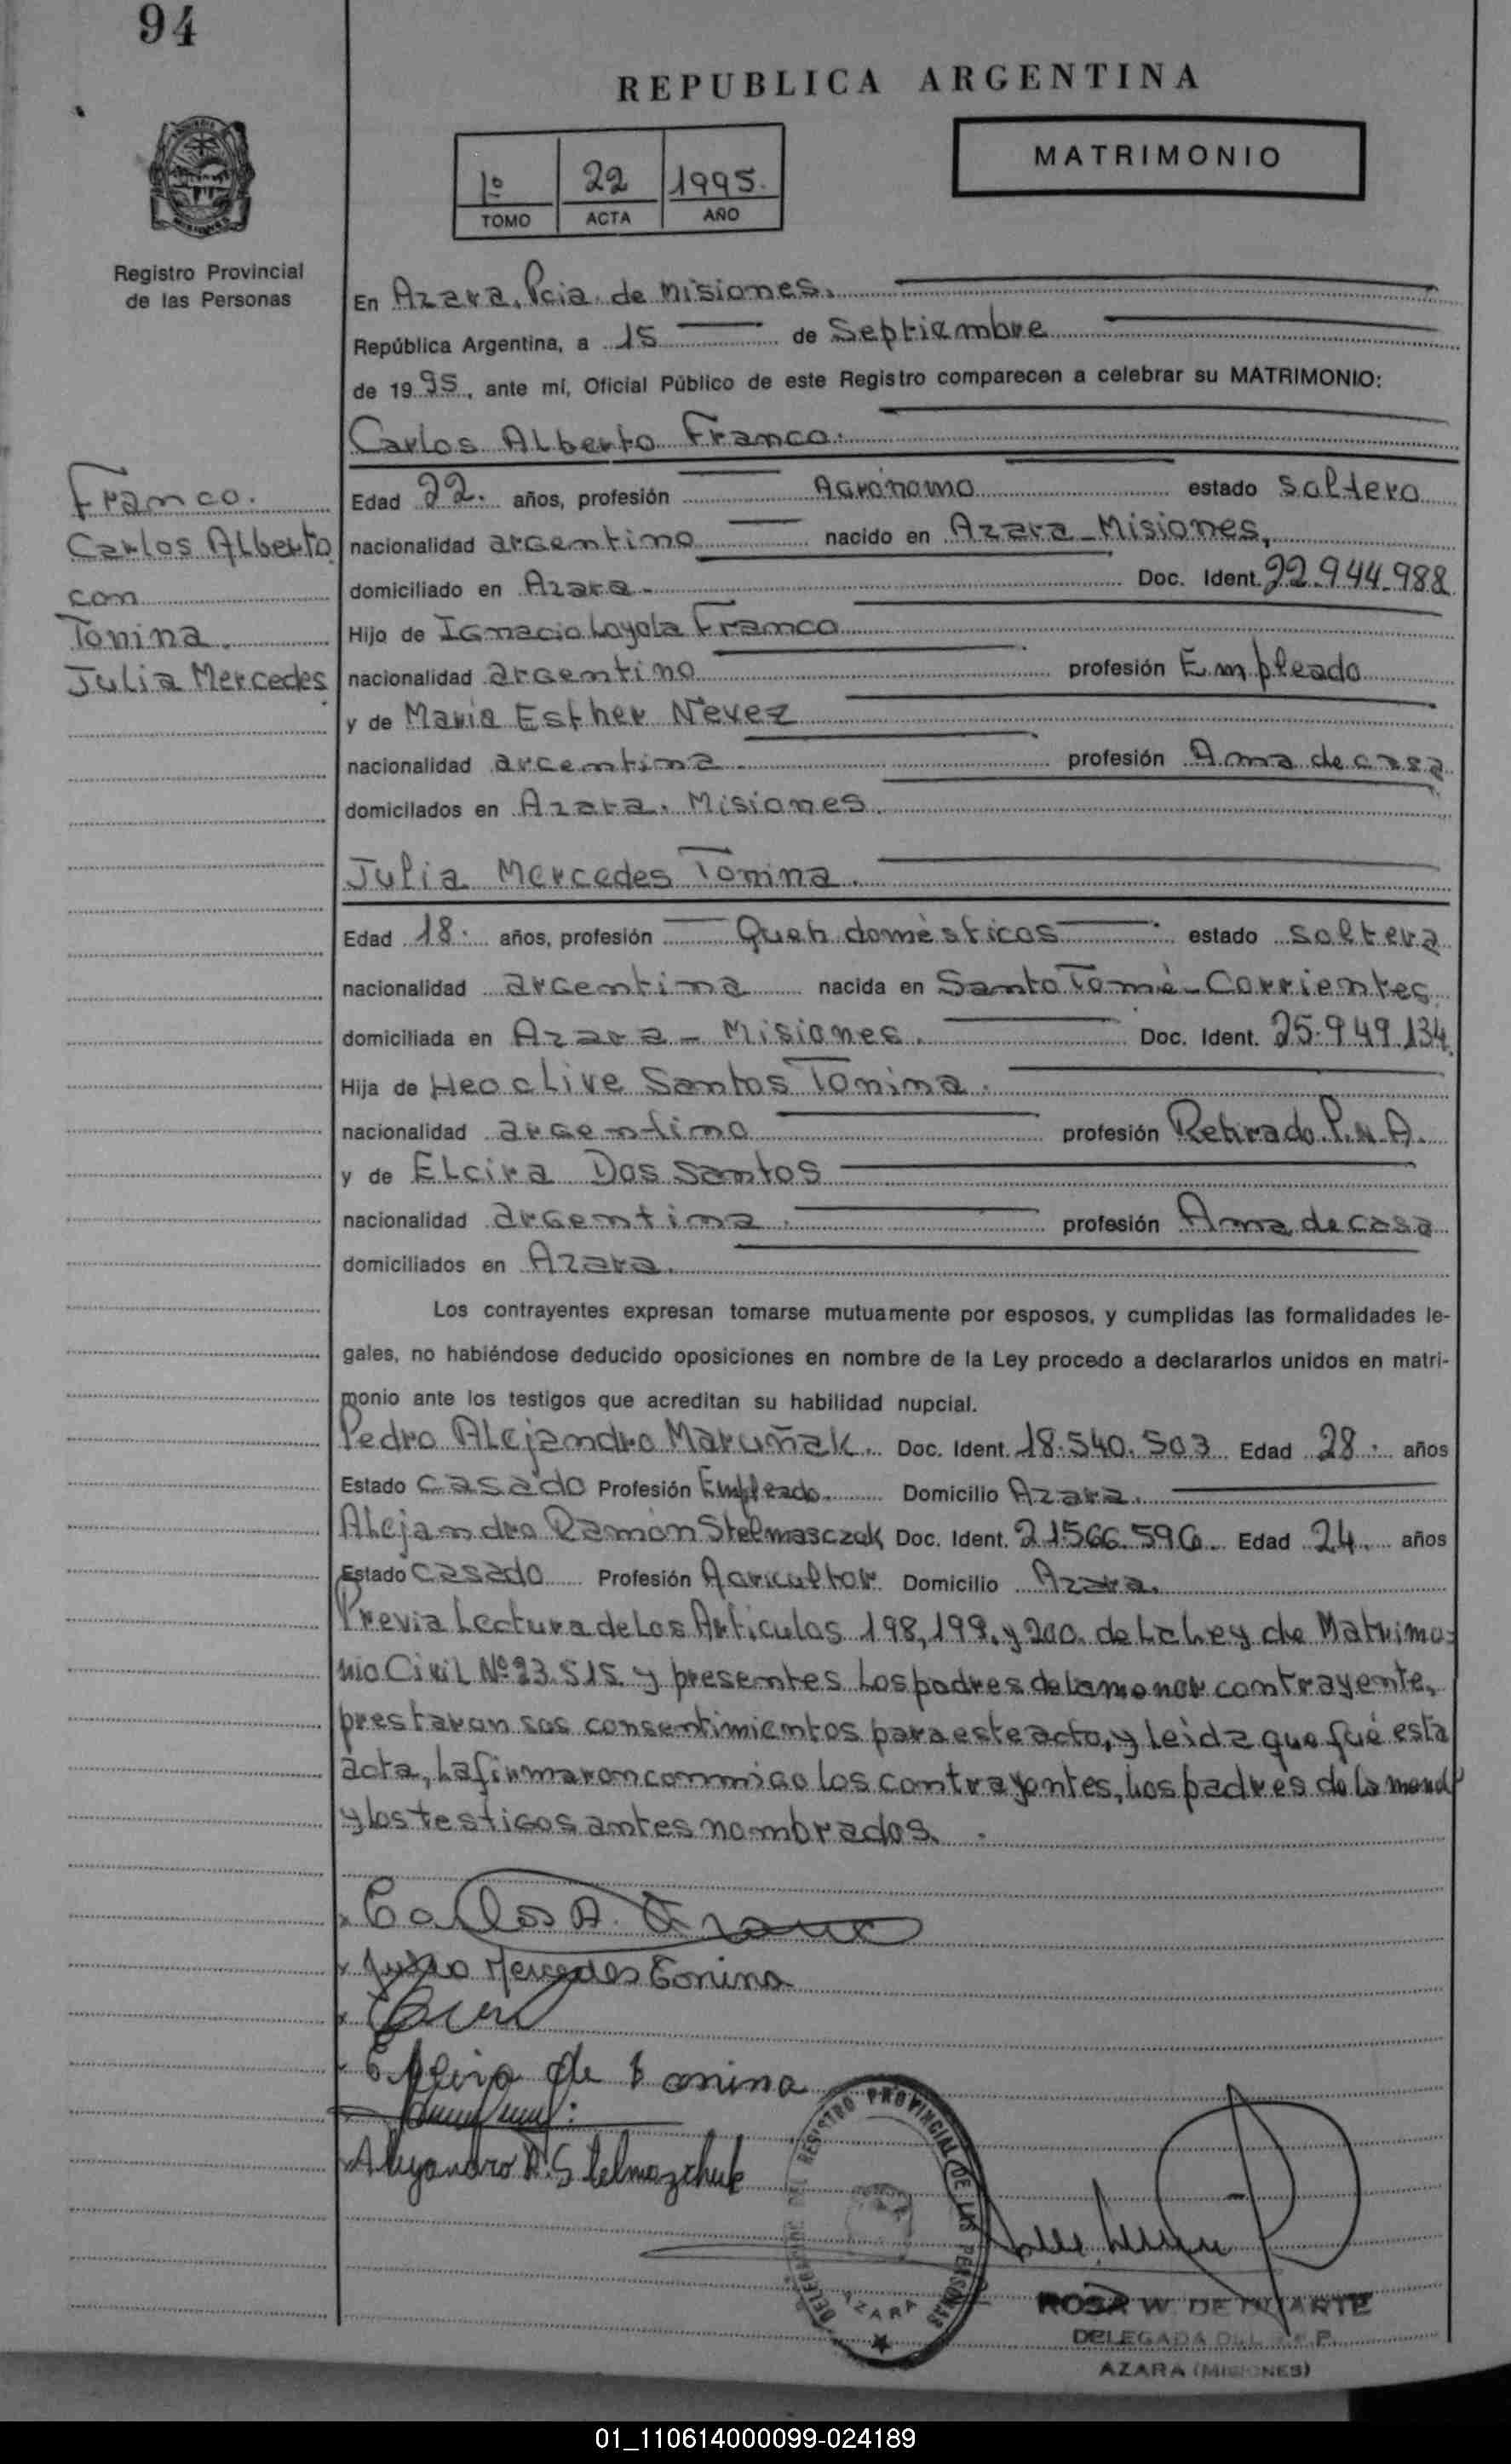 94
REPUBLICA ARGENTINA
MATRIMONIO
1º 22 1995.
TOMO ACTA AÑO
Registro Provincial
de las Personas
En Azara, Pcia. de Misiones.
República Argentina, a 15 de Septiembre
de 1995, ante mí, Oficial Público de este Registro comparecen a celebrar su MATRIMONIO:
Carlos Alberto Franco.
Franco.
Carlos Alberto
con
Tonina.
Julia Mercedes
Edad 22. años, profesión Agrónomo estado soltero
nacionalidad argentino nacido en Azara - Misiones,
domiciliado en Azara. Doc. Ident. 22.944.988
Hijo de Ignacio Loyola Franco
nacionalidad argentino profesión Empleado
y de María Esther Nevez
nacionalidad argentina profesión Ama de casa
domicilados en Azara. Misiones.
Julia Mercedes Tonina.
Edad 18. años, profesión Queh domésticos estado soltera
nacionalidad argentina nacida en Santo Tomé - Corrientes
domiciliada en Azara - Misiones. Doc. Ident. 25.949.134.
Hija de Heoclive Santos Tonina.
nacionalidad argentino profesión Retirado P.N.A.
y de Elcira Dos Santos
nacionalidad argentina. profesión Ama de casa
domiciliados en Azara.
Los contrayentes expresan tomarse mutuamente por esposos, y cumplidas las formalidades le-
gales, no habiéndose deducido oposiciones en nombre de la Ley procedo a declararlos unidos en matri-
monio ante los testigos que acreditan su habilidad nupcial.
Pedro Alejandro Maruñak. Doc. Ident. 18.540.503 Edad 28. años
Estado Casado Profesión Empleado. Domicilio Azara.
Alejandro Ramón Stelmasczuk Doc. Ident. 21.566.596. Edad 24. años
Estado Casado Profesión Agricultor. Domicilio Azara.
Previa Lectura de los Artículos 198, 199, y 200 de la Ley de Matrimo-
nio Civil Nº 23.515 y presentes los padres de la menor contrayente,
prestaron sus consentimientos para este acto, y leída que fué esta
acta, la firmaron conmigo los contrayentes, los padres de la menor
y los testigos antes nombrados.
Carlos A. Franco
Julia Mercedes Tonina
Elcira de Tonina
Alejandro R. Stelmazchuk
DELEGACION DEL REGISTRO PROVINCIAL DE LAS PERSONAS
AZARA
ROSA W. DE DUARTE
DELEGADA DEL R.P.P.
AZARA (MISIONES)
01_110614000099-024189